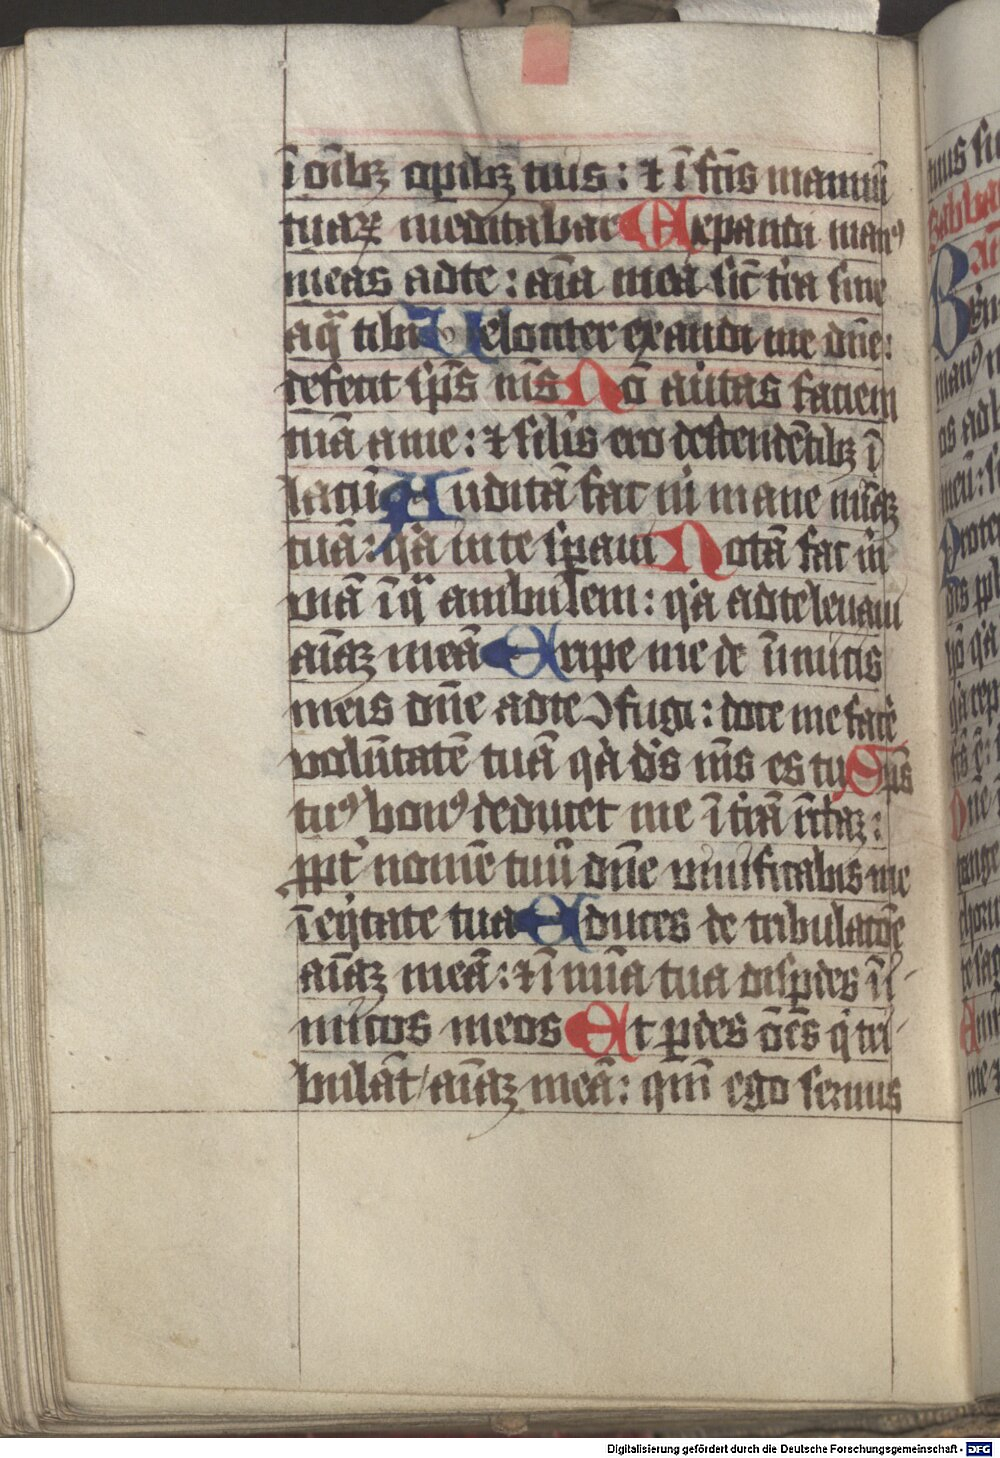 ī oīb₃ opib₃ tuis : ⁊ ī fc̄is manuū
tuaꝝ meditabar Expandi manꝯ
meas adte : aīa mea sic̄ tr̄a sine
aq̄ tibi Velociter exaudi me dn̄e :
defecit sp̄s mīs No auītas faciem
tuā ame : ⁊ silis ero descendētib₃ ī
lacū Auditā fac m̄ mane mīaꝫ
tuā : qͥa inte speraui Notā fac m̄
viā ī q̄ ambulem : qͥa adte leuaui
aīaꝫ meā Eripe me de īimicis
meis dn̄e adte ꝯfugi : doce me facē
volūtatē tuā qͥa ds̄ ms̄ es tu Sps̄
tuꝯ bonꝯ deducet me ī tr̄ā rc̄taꝫ :
ꝓpt̄ nomē tuū dn̄e viuificabis me
ī eq̄tate tua Educes de tribulatōe
aīaꝫ meā : ⁊ ī mīa tua disꝑdes īī-
micos meos Et ꝑdes oēs qͥ tri-
bulāt aīaꝫ meā : qm̄ ego seruus
tuus su
Sabba
Bn̄
manꝯ
os ad b
meū : s
Protec
dis ppl
qͥa rep
Dn̄e
tange
me
Digitalisierung gefördert durch die Deutsche Forschungsgemeinschaft - DFG